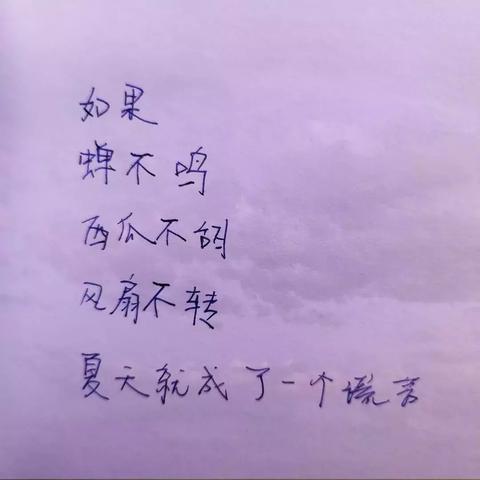 如果
蝉不鸣
西瓜不
风扇不转
夏天就成了一个谎言